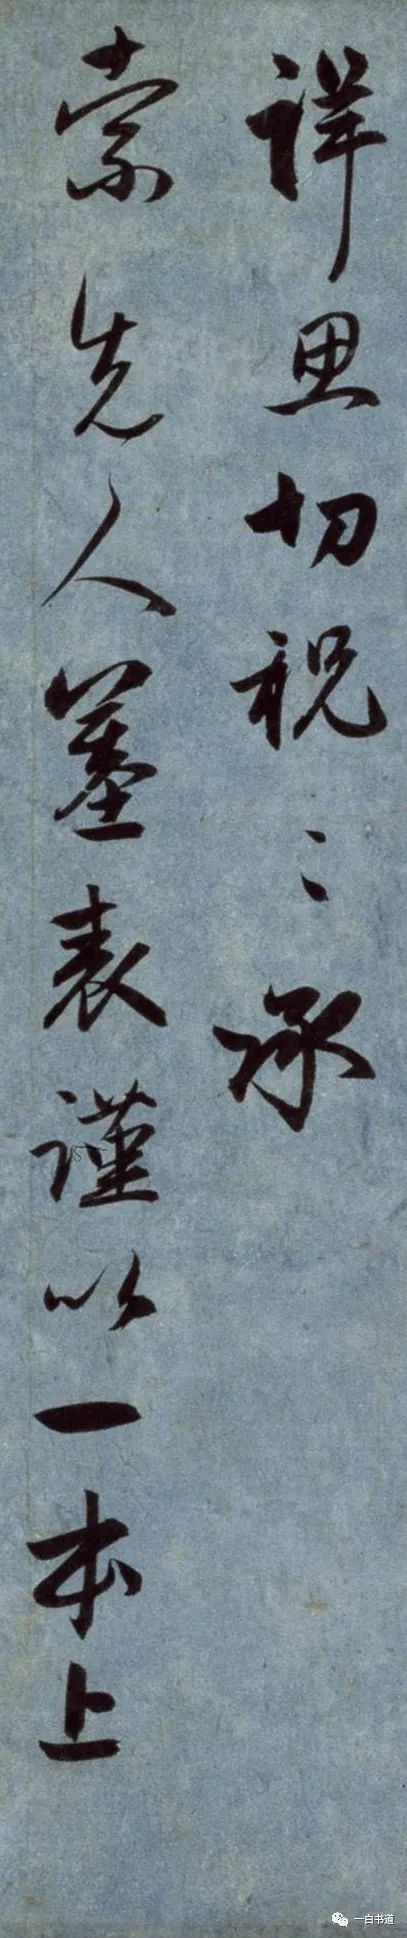 詳思切祝〻承
索先人墓表謹以一本上
一白书道